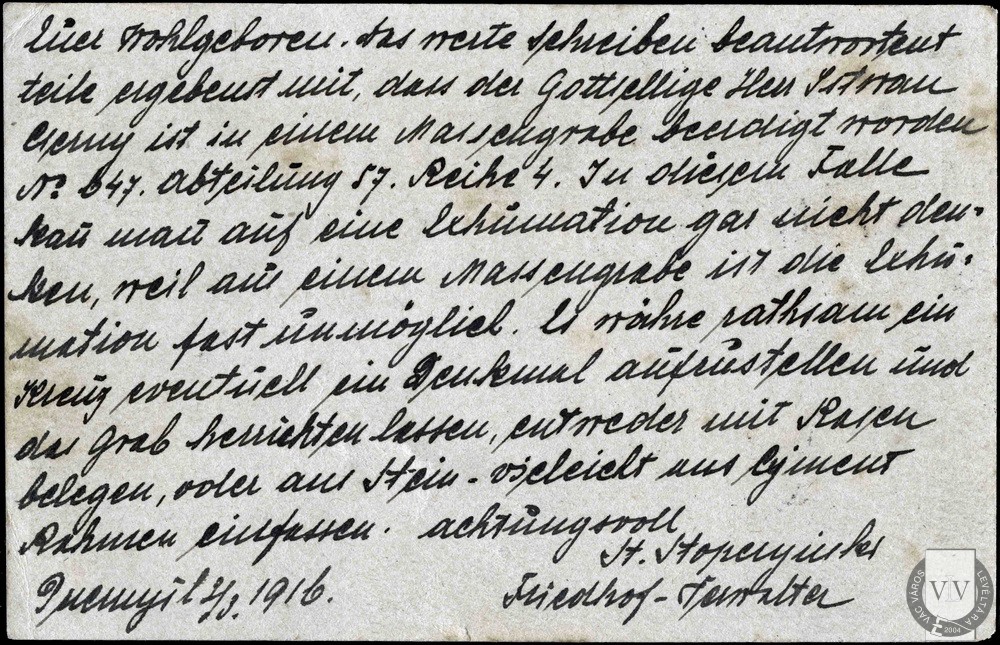 Euer Wohlgeboren. Das werte Schreiben beantwortent
teile ergebenst mit, dass der Gottsellige Herr Istwan
Cserny ist in einem Massengrabe beerdigt worden
No. 647. Abteilung 57. Reihe 4. In diesem Falle
kan man auf eine Exhumation gar nicht den-
ken, weil aus einem Massengrabe ist die Exhu-
mation fast unmöglich. Es währe rathsam ein
Kreuz eventuell ein Denkmal aufzustellen und
das Grab herrichten lassen, entweder mit Rasen
belegen, oder aus Stein - vieleicht aus Cyment
Rahmen einfassen. achtungsvoll
St. Stoperzynski
Przemysl 2/3. 1916.
Friedhof-Verwalter
VÁC VÁROS LEVÉLTÁRA
VV
2004